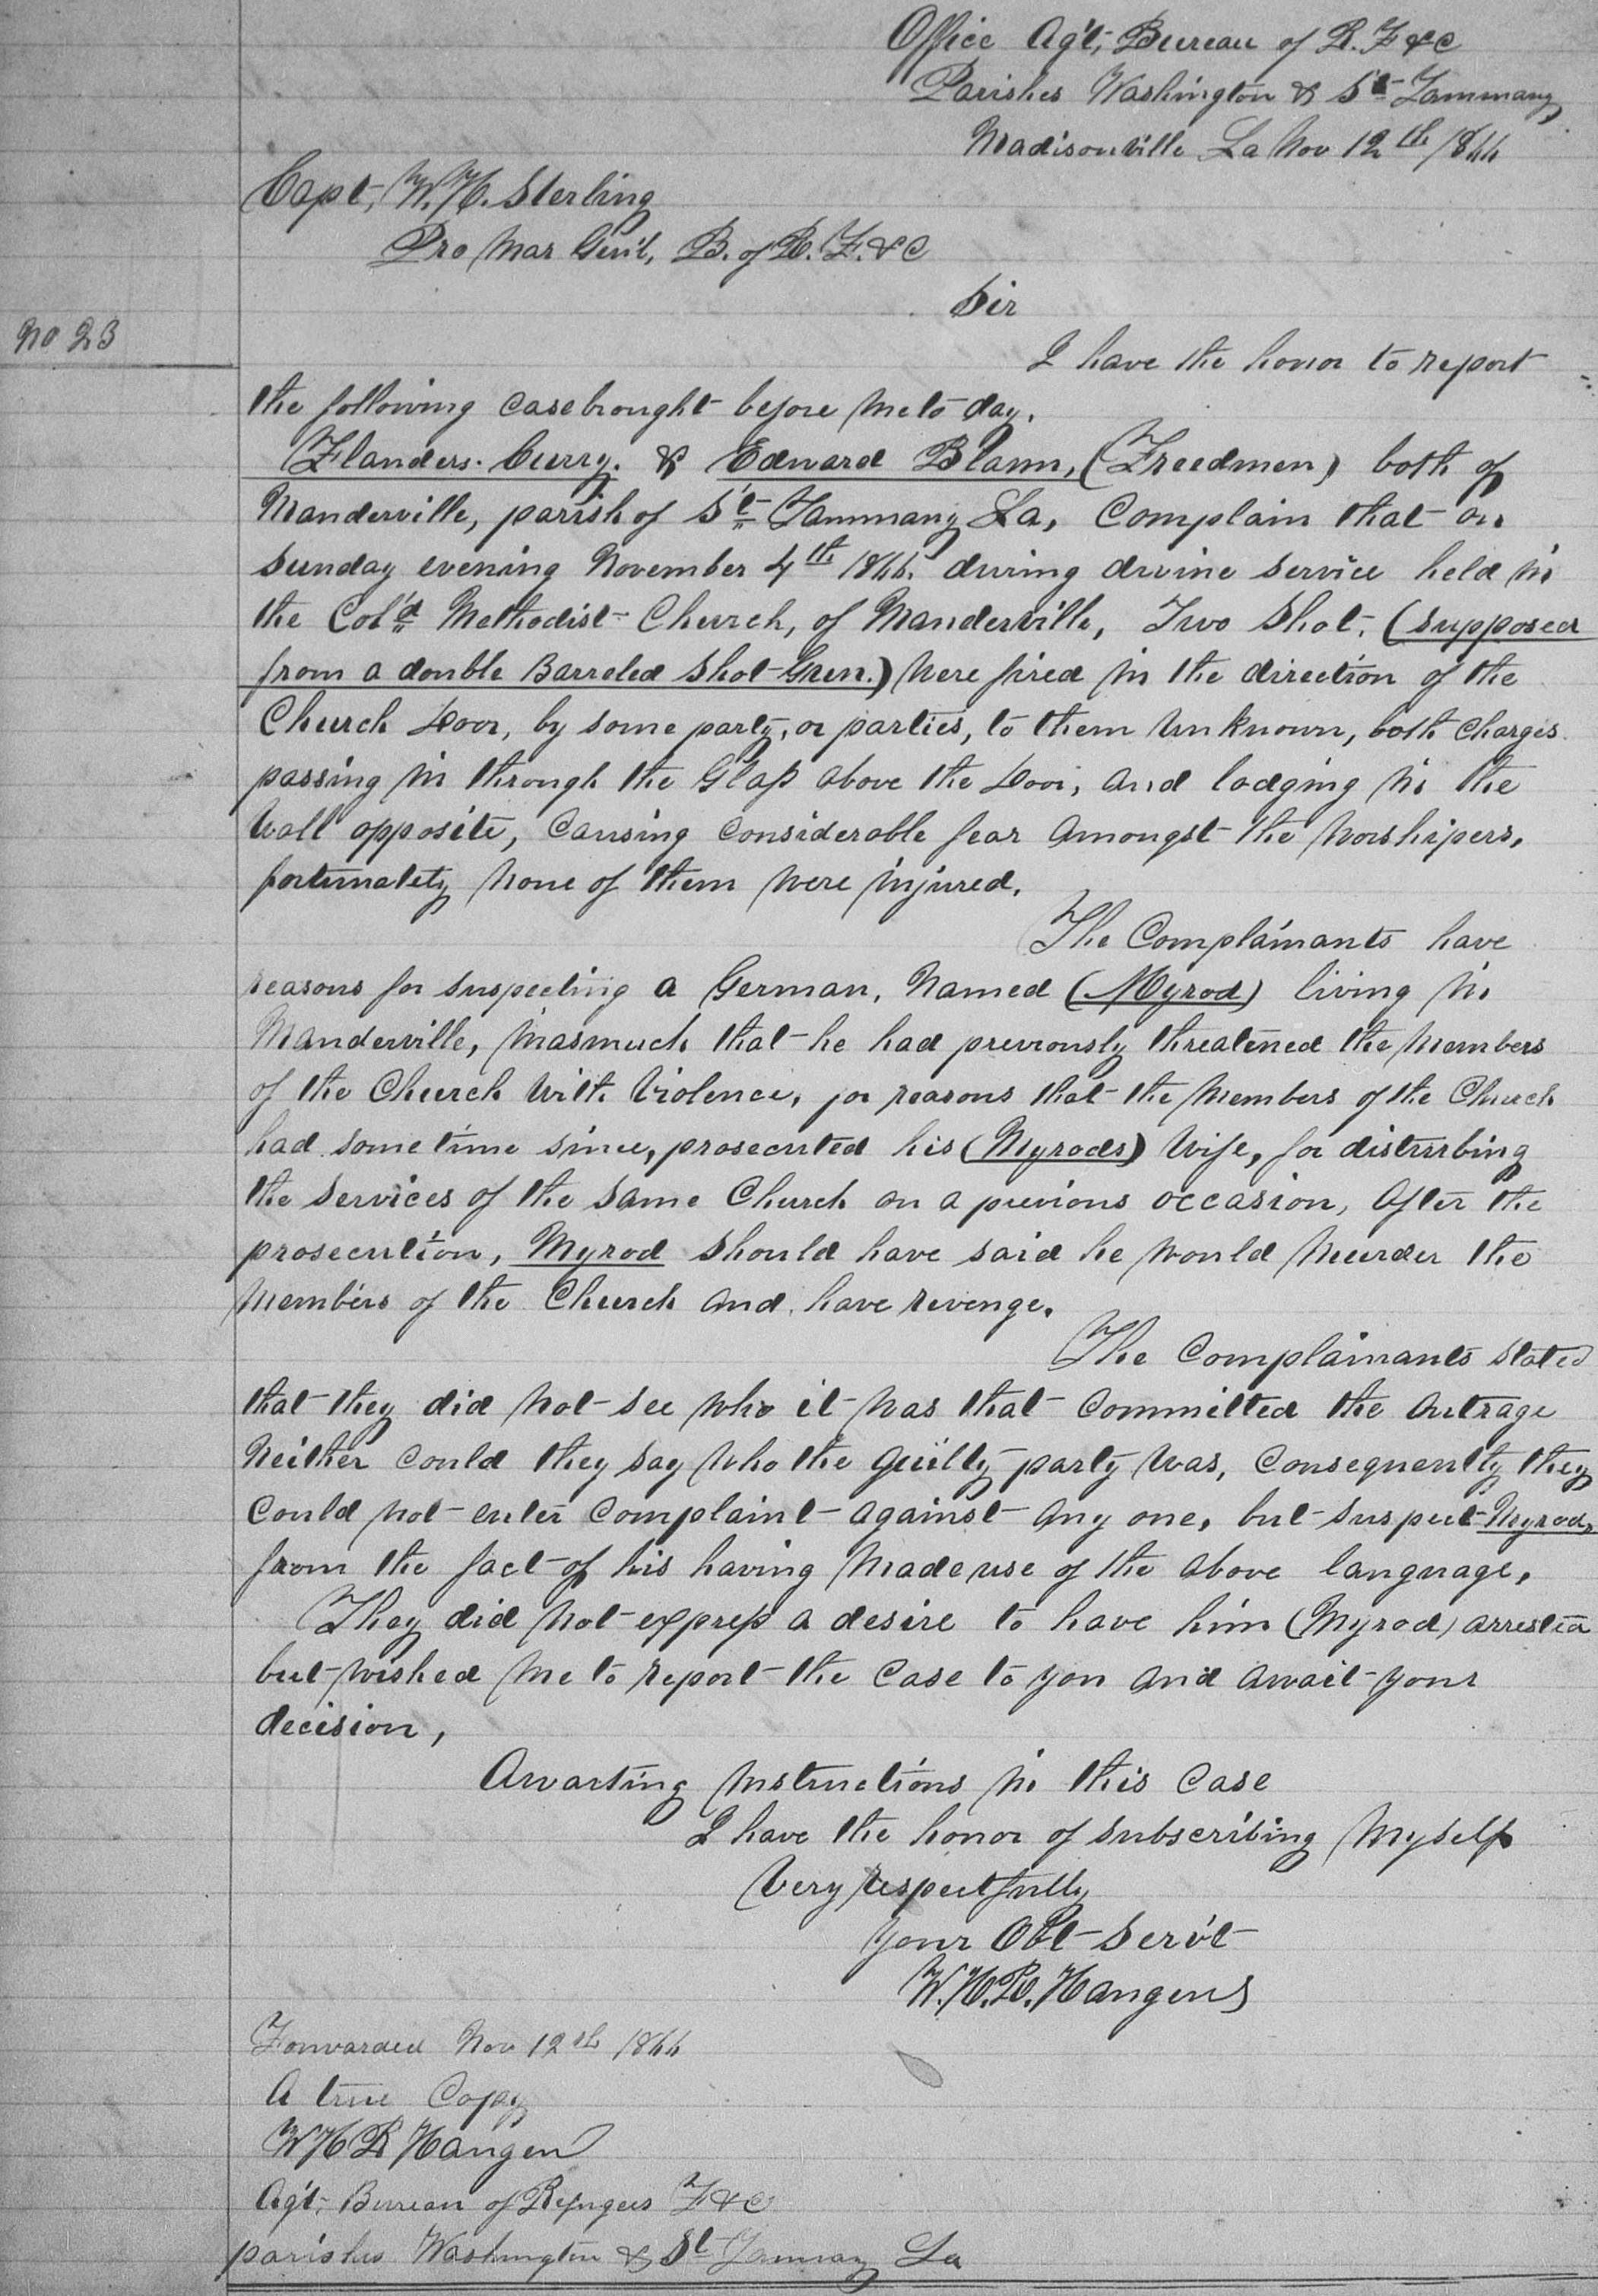 Office Ag't, Bureau of R. F & C
Parishes Washington & St Tammany
Madisonville La Nov 12th 1866
Capt, W. H. Sterling
Pro Mar Gen'l, B. of R. F. & C
Sir
No 23
I have the honor to report
the following case brought before me to day.
Flanders. Curry. & Edward Blann, (Freedmen) both of
Manderville, parish of St Tammany La, Complain that on
Sunday evening November 4th 1866. during divine service held in
the Col'd Methodist Church, of Manderville, Two Shot, (supposed
from a double Barreled Shot Gun.) were fired in the direction of the
Church Door, by some party, or parties, to them unknown, both charges
passing in through the Glass above the Door, and lodging in the
Wall opposite, Causing considerable fear amongst the worshipers,
fortunately none of them were injured.
The Complainants have
reasons for suspecting a German, Named (Myrod) living in
Manderville, inasmuch that he had previously threatened the members
of the Church with Violence, for reasons that the members of the Church
had sometime since, prosecuted his (Myrods) Wife, for disturbing
the services of the same Church on a previous occasion, After the
prosecution, Myrod should have said he would Murder the
members of the Church and have revenge.
The Complainants stated
that they did not see who it was that committed the outrage
Neither could they say who the guilty party was, Consequently they
could not enter complaint against any one, but suspect Myrod,
from the fact of his having made use of the above language,
They did not express a desire to have him (Myrod) arrested
but wished me to report the case to you and await your
decision,
Awaiting instructions in this case
I have the honor of subscribing myself
Very respectfully
Your Obt Serv't
W. H. R. Hangens
Forwarded Nov 12th 1866
A true Copy
W H R Hangen
Ag't, Bureau of Refugees F & C
parishes Washington & St Tammany La